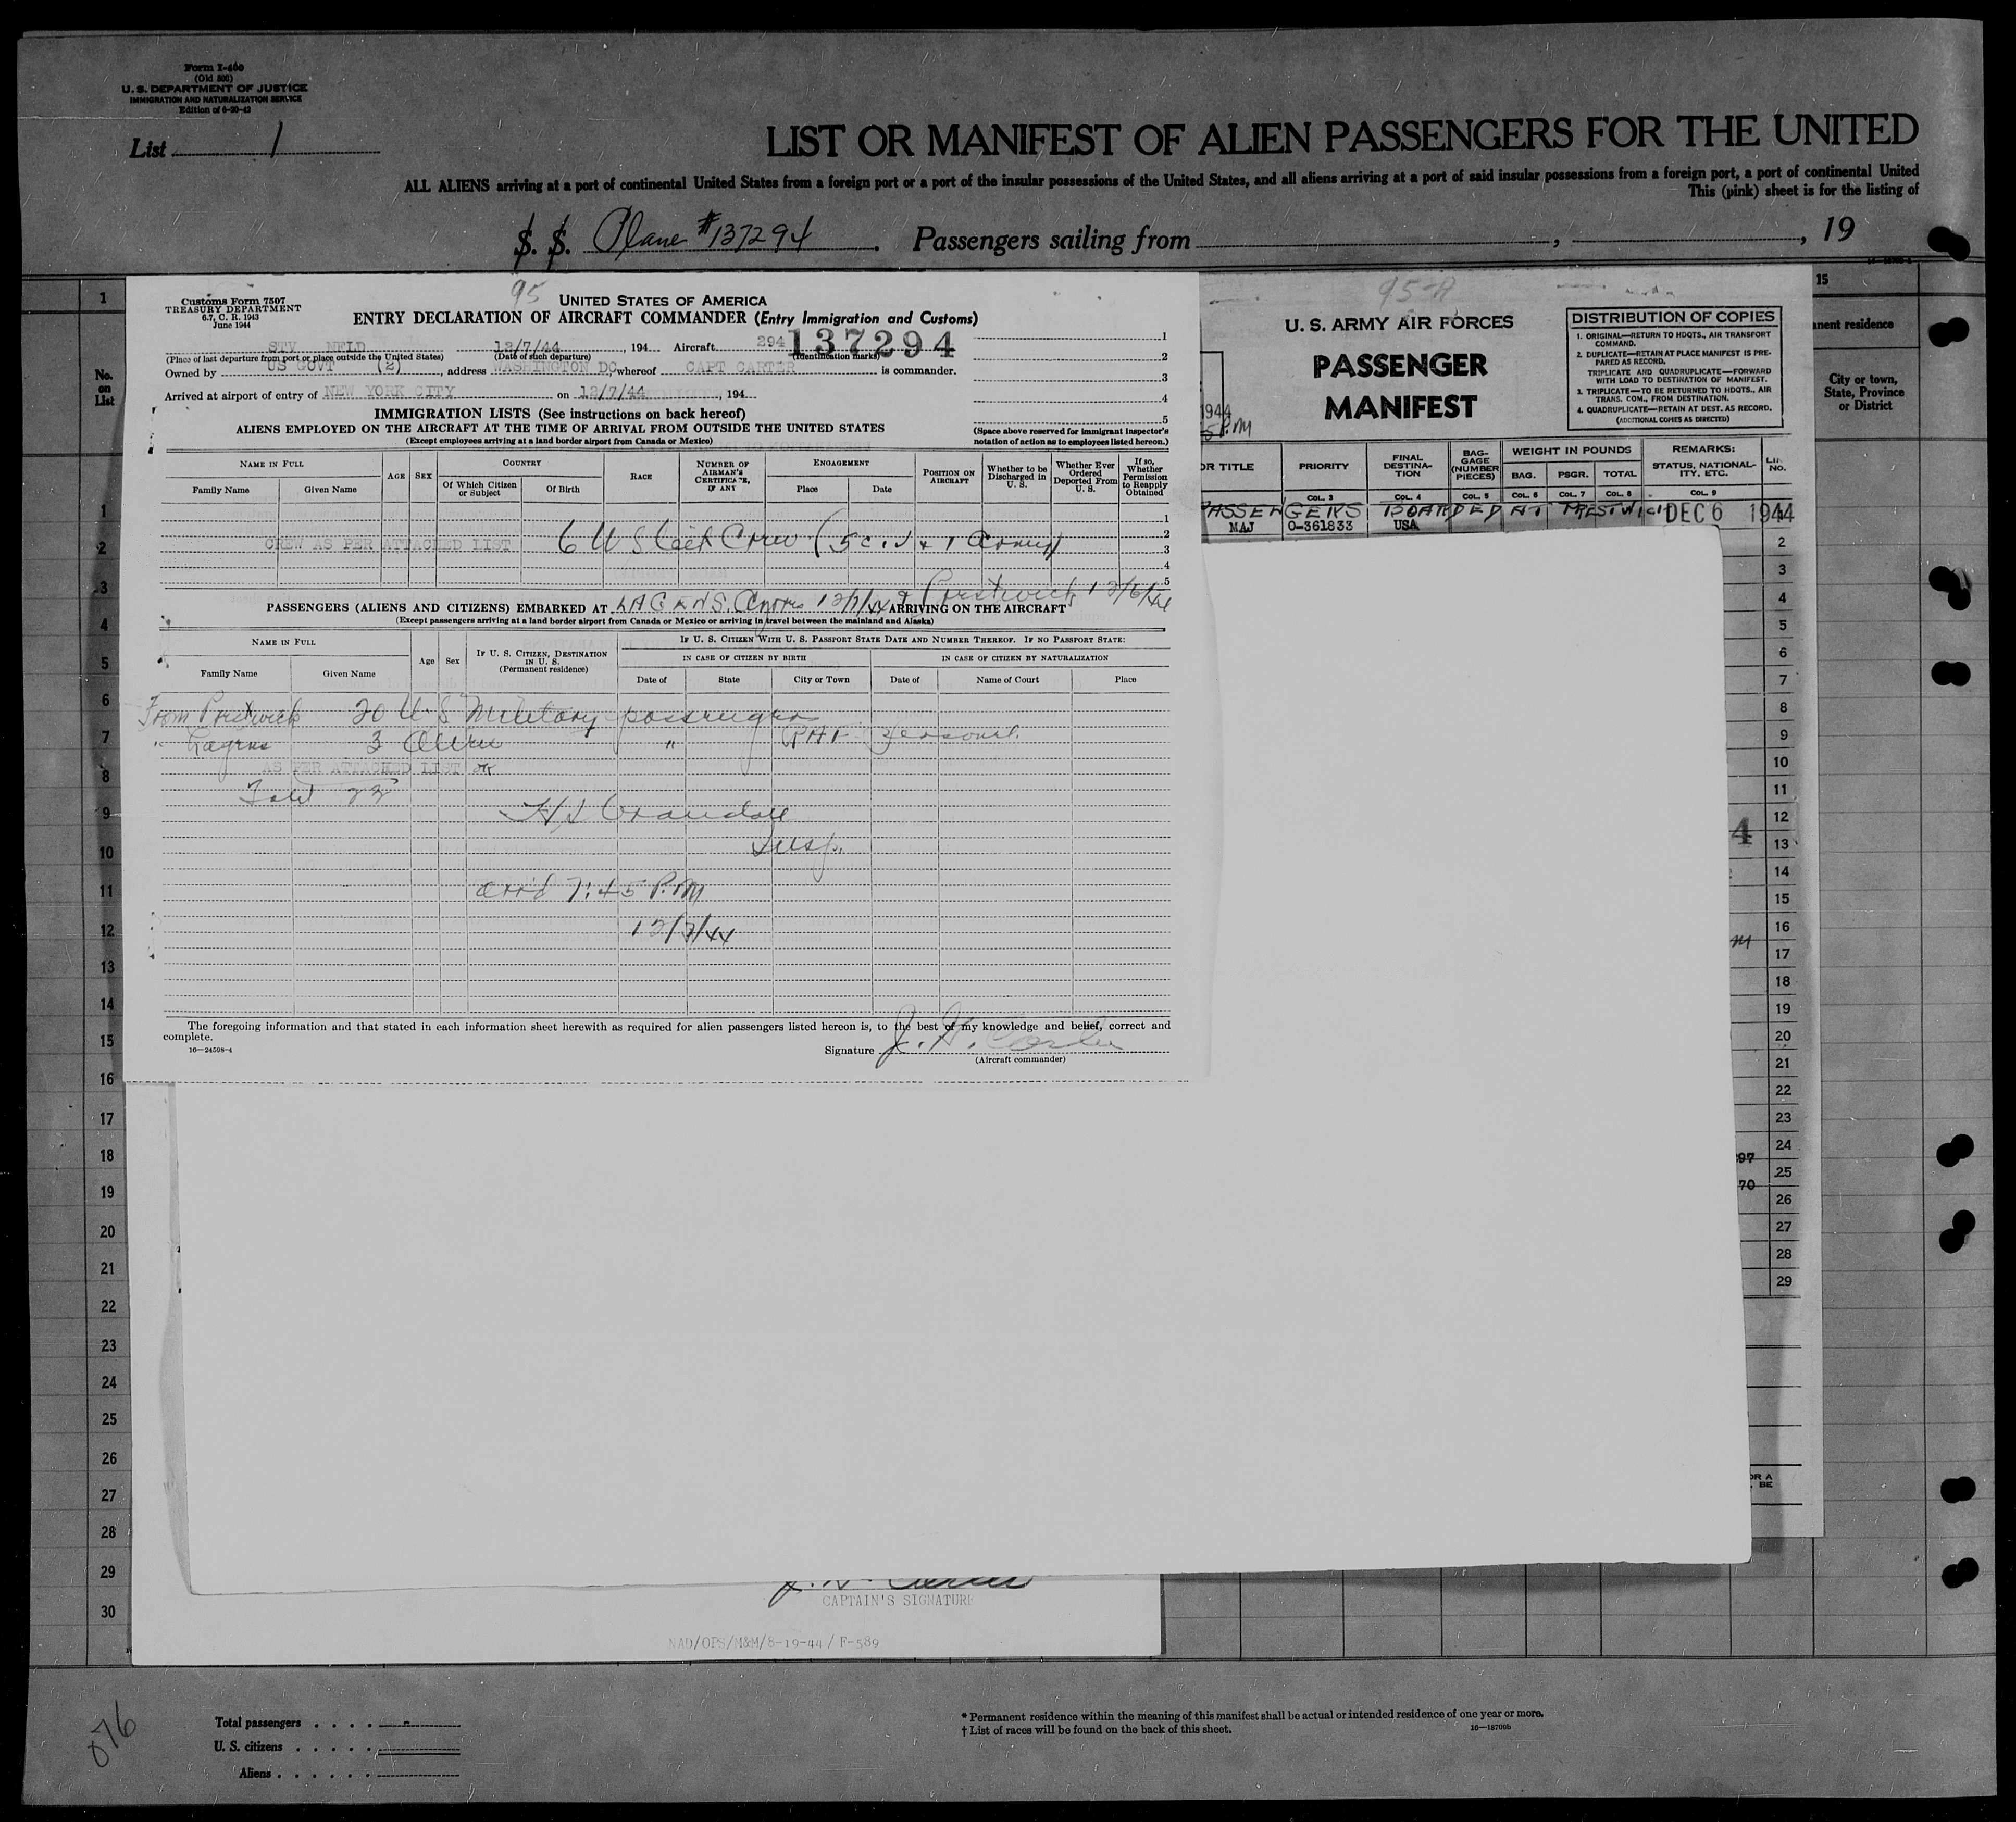 Form I-400
(Old 500)
U. S. DEPARTMENT OF JUSTICE
IMMIGRATION AND NATURALIZATION SERVICE
Edition of 6-20-43
List 1
LIST OR MANIFEST OF ALIEN PASSENGERS FOR THE UNITED
ALL ALIENS arriving at a port of continental United States from a foreign port or a port of the insular possessions of the United States, and all aliens arriving at a port of said insular possessions from a foreign port, a port of continental United
This (pink) sheet is for the listing of
S. S. Plane #137294. Passengers sailing from , , 19
95
Customs Form 7507
TREASURY DEPARTMENT
6.7, C. R. 1943
June 1944
UNITED STATES OF AMERICA
ENTRY DECLARATION OF AIRCRAFT COMMANDER (Entry Immigration and Customs)
STV NFLD 12/7/44, 194 Aircraft 294 137294
(Place of last departure from port or place outside the United States) (Date of such departure) (Identification marks)
Owned by US GOVT (2), address WASHINGTON DC, whereof CAPT CARTER is commander.
Arrived at airport of entry of NEW YORK CITY on 12/7/44, 194
1
2
3
4
5
IMMIGRATION LISTS (See instructions on back hereof)
ALIENS EMPLOYED ON THE AIRCRAFT AT THE TIME OF ARRIVAL FROM OUTSIDE THE UNITED STATES
(Except employees arriving at a land border airport from Canada or Mexico)
(Space above reserved for immigrant inspector's notation of action as to employees listed hereon.)
NAME IN FULL
Family Name
Given Name
AGE
SEX
COUNTRY
Of Which Citizen or Subject
Of Birth
RACE
NUMBER OF AIRMAN'S CERTIFICATE, IF ANY
ENGAGEMENT
Place
Date
POSITION ON AIRCRAFT
Whether to be Discharged in U. S.
Whether Ever Ordered Deported From U. S.
If so, Whether Permission to Reapply Obtained
1
2
3
4
5
CREW AS PER ATTACHED LIST
6 U S Cit Crew (5 civ + 1 Army)
PASSENGERS (ALIENS AND CITIZENS) EMBARKED AT LAGENS. Azores 12/7/44 & Prestwick 12/6/44 ARRIVING ON THE AIRCRAFT
(Except passengers arriving at a land border airport from Canada or Mexico or arriving in travel between the mainland and Alaska)
NAME IN FULL
Family Name
Given Name
Age
Sex
IF U. S. CITIZEN, DESTINATION IN U. S.
(Permanent residence)
IF U. S. CITIZEN WITH U. S. PASSPORT STATE DATE AND NUMBER THEREOF. IF NO PASSPORT STATE:
IN CASE OF CITIZEN BY BIRTH
IN CASE OF CITIZEN BY NATURALIZATION
Date of
State
City or Town
Date of
Name of Court
Place
From Prestwick 20 U. S Military passengers
" Lagens 3 "
AS PER ATTACHED LIST
Total 23
Insp.
arr'd 7:45 P.M
12/7/44
The foregoing information and that stated in each information sheet herewith as required for alien passengers listed hereon is, to the best of my knowledge and belief, correct and
complete.
16—24508-4
Signature J. H. Carter
(Aircraft commander)
95-A
U. S. ARMY AIR FORCES
PASSENGER
MANIFEST
DISTRIBUTION OF COPIES
1. ORIGINAL—RETURN TO HDQTS., AIR TRANSPORT COMMAND.
2. DUPLICATE—RETAIN AT PLACE MANIFEST IS PREPARED AS RECORD.
TRIPLICATE AND QUADRUPLICATE—FORWARD WITH LOAD TO DESTINATION OF MANIFEST.
3. TRIPLICATE—TO BE RETURNED TO HDQTS., AIR TRANS. COM., FROM DESTINATION.
4. QUADRUPLICATE—RETAIN AT DEST. AS RECORD.
(ADDITIONAL COPIES AS DIRECTED)
1944
P.M
OR TITLE
PRIORITY
FINAL DESTINATION
BAGGAGE (NUMBER PIECES)
WEIGHT IN POUNDS
BAG.
PSGR.
TOTAL
REMARKS:
STATUS, NATIONALITY, ETC.
NO.
COL. 3
COL. 4
COL. 5
COL. 6
COL. 7
COL. 8
COL. 9
PASSENGERS BOARDED AT PRESTWICK DEC 6 1944
MAJ O-361833 USA
2
3
4
5
6
7
8
9
10
11
12
13
14
15
16
17
18
19
20
21
22
23
24
25
26
27
28
29
4
97
70
OR A
BE
15
anent residence
City or town, State, Province or District
No. on List
1
1
2
3
4
5
6
7
8
9
10
11
12
13
14
15
16
17
18
19
20
21
22
23
24
25
26
27
28
29
30
CAPTAIN'S SIGNATURE
NAD/OPS/M&M/8-19-44/ F-589
076
Total passengers
U. S. citizens
Aliens
* Permanent residence within the meaning of this manifest shall be actual or intended residence of one year or more.
† List of races will be found on the back of this sheet.
16—18709b